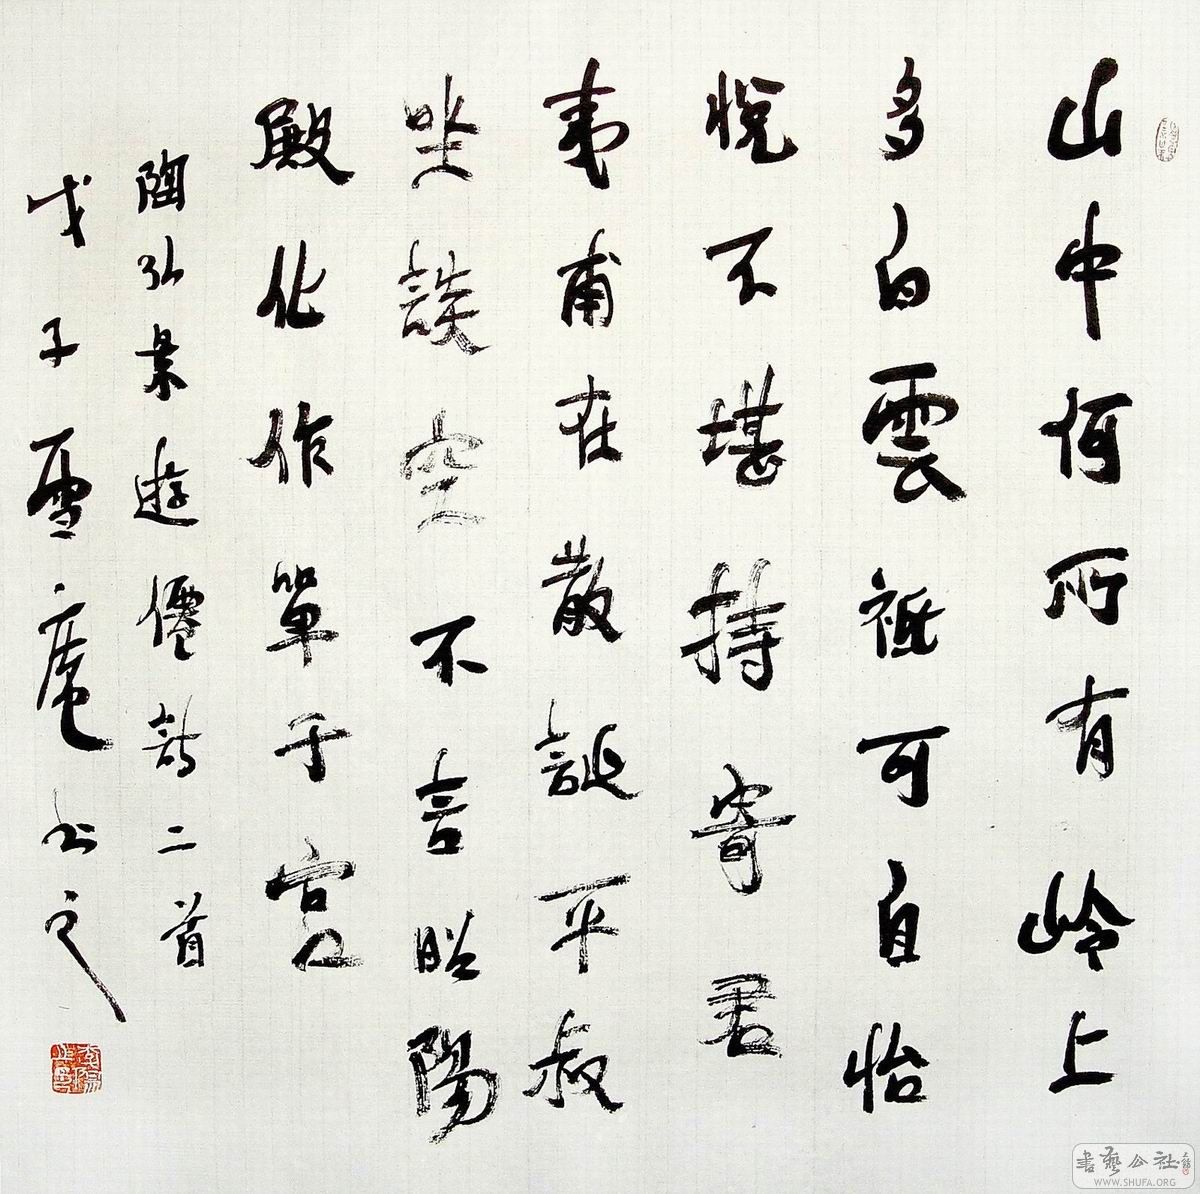 山中何所有岭上
多白雲祗可自怡
悦不堪持寄君
夷甫在散誕平叔
坐談空不言昭陽
殿化作單于宫
陶弘景遊僊詩二首
戊子雪庵书之
書藝公社
WWW.SHUFA.ORG